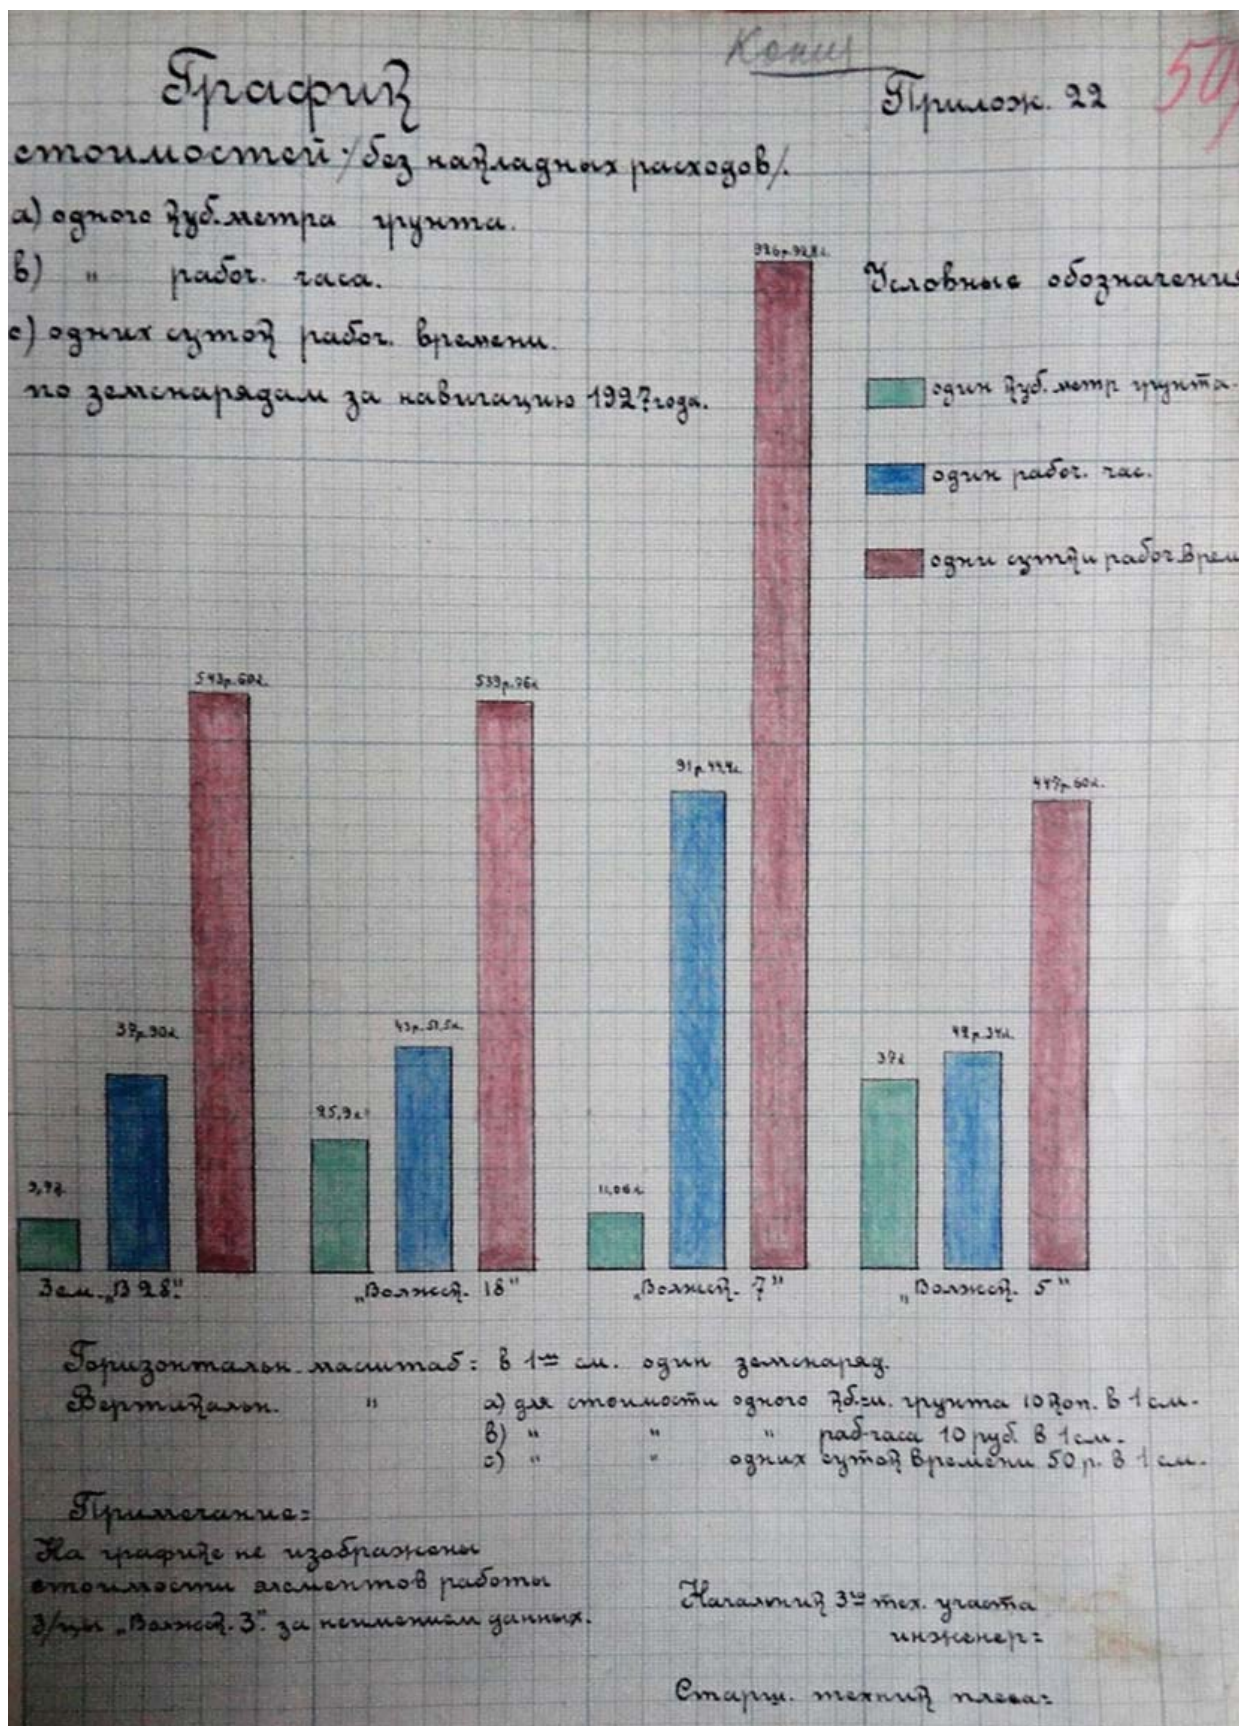 Копия
График
Прилож. 22
50
стоимостей /без накладных расходов/.
а) одного куб. метра грунта.
в) " рабоч. часа.
с) одних суток рабоч. времени.
по земснарядам за навигацию 1927 года.
Условные обозначения
один куб. метр грунта.
один рабоч. час.
одни сутки рабоч. врем
926р. 92,8к.
543р. 60к.
539р. 76к.
91р. 44,4к.
447р. 60к.
37р. 90к.
43р. 51,5к.
42р. 34к.
37к
25,9к
9,9к
11,06к
Зем. „В 28"
„Волжск. 18"
„Волжск. 7"
„Волжск. 5"
Горизонтальн. масштаб: в 1ᵐ см. один земснаряд.
Вертикальн. " а) для стоимости одного кб.м. грунта 10 коп. в 1 см.
в) " " " раб-часа 10 руб. в 1 см.
с) " " одних суток времени 50 р. в 1 см.
Примечание:
На графике не изображены
стоимости элементов работы
з/цы „Волжск. 3". за неимением данных.
Начальник 3ᵍᵒ тех. участа
инженер:
Старш. техник плеса: